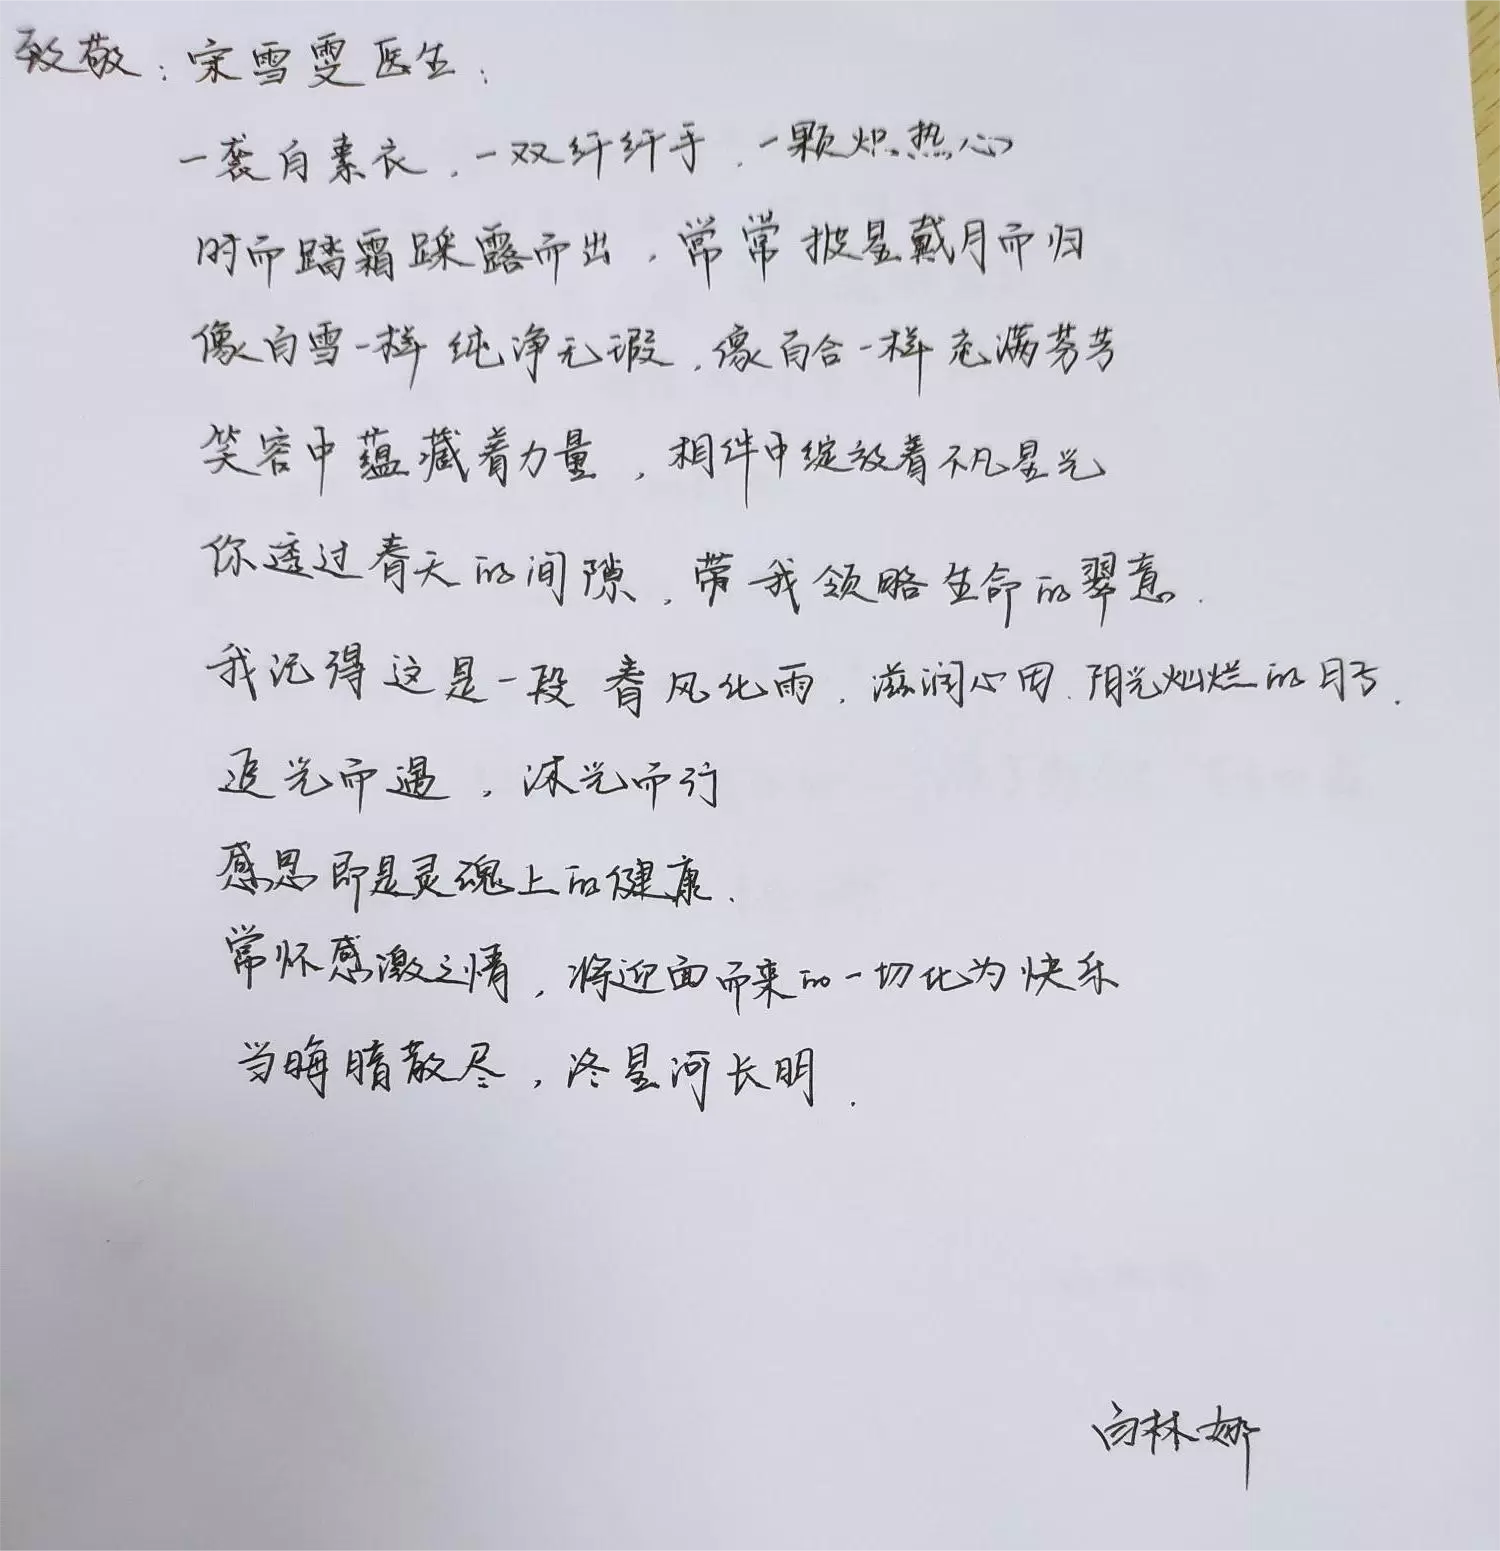 致敬：宋雪雯医生：
一袭白素衣，一双纤纤手，一颗炽热心
时而踏霜踩露而出，常常披星戴月而归
像白雪一样纯净无瑕，像百合一样充满芬芳
笑容中蕴藏着力量，相伴中绽放着不凡星光
你透过春天的间隙，带我领略生命的翠意.
我记得这是一段春风化雨，滋润心田.阳光灿烂的日子.
追光而遇，沐光而行
感恩即是灵魂上的健康.
常怀感激之情，将迎面而来的一切化为快乐
当晦暗散尽，终星河长明.
白林娜